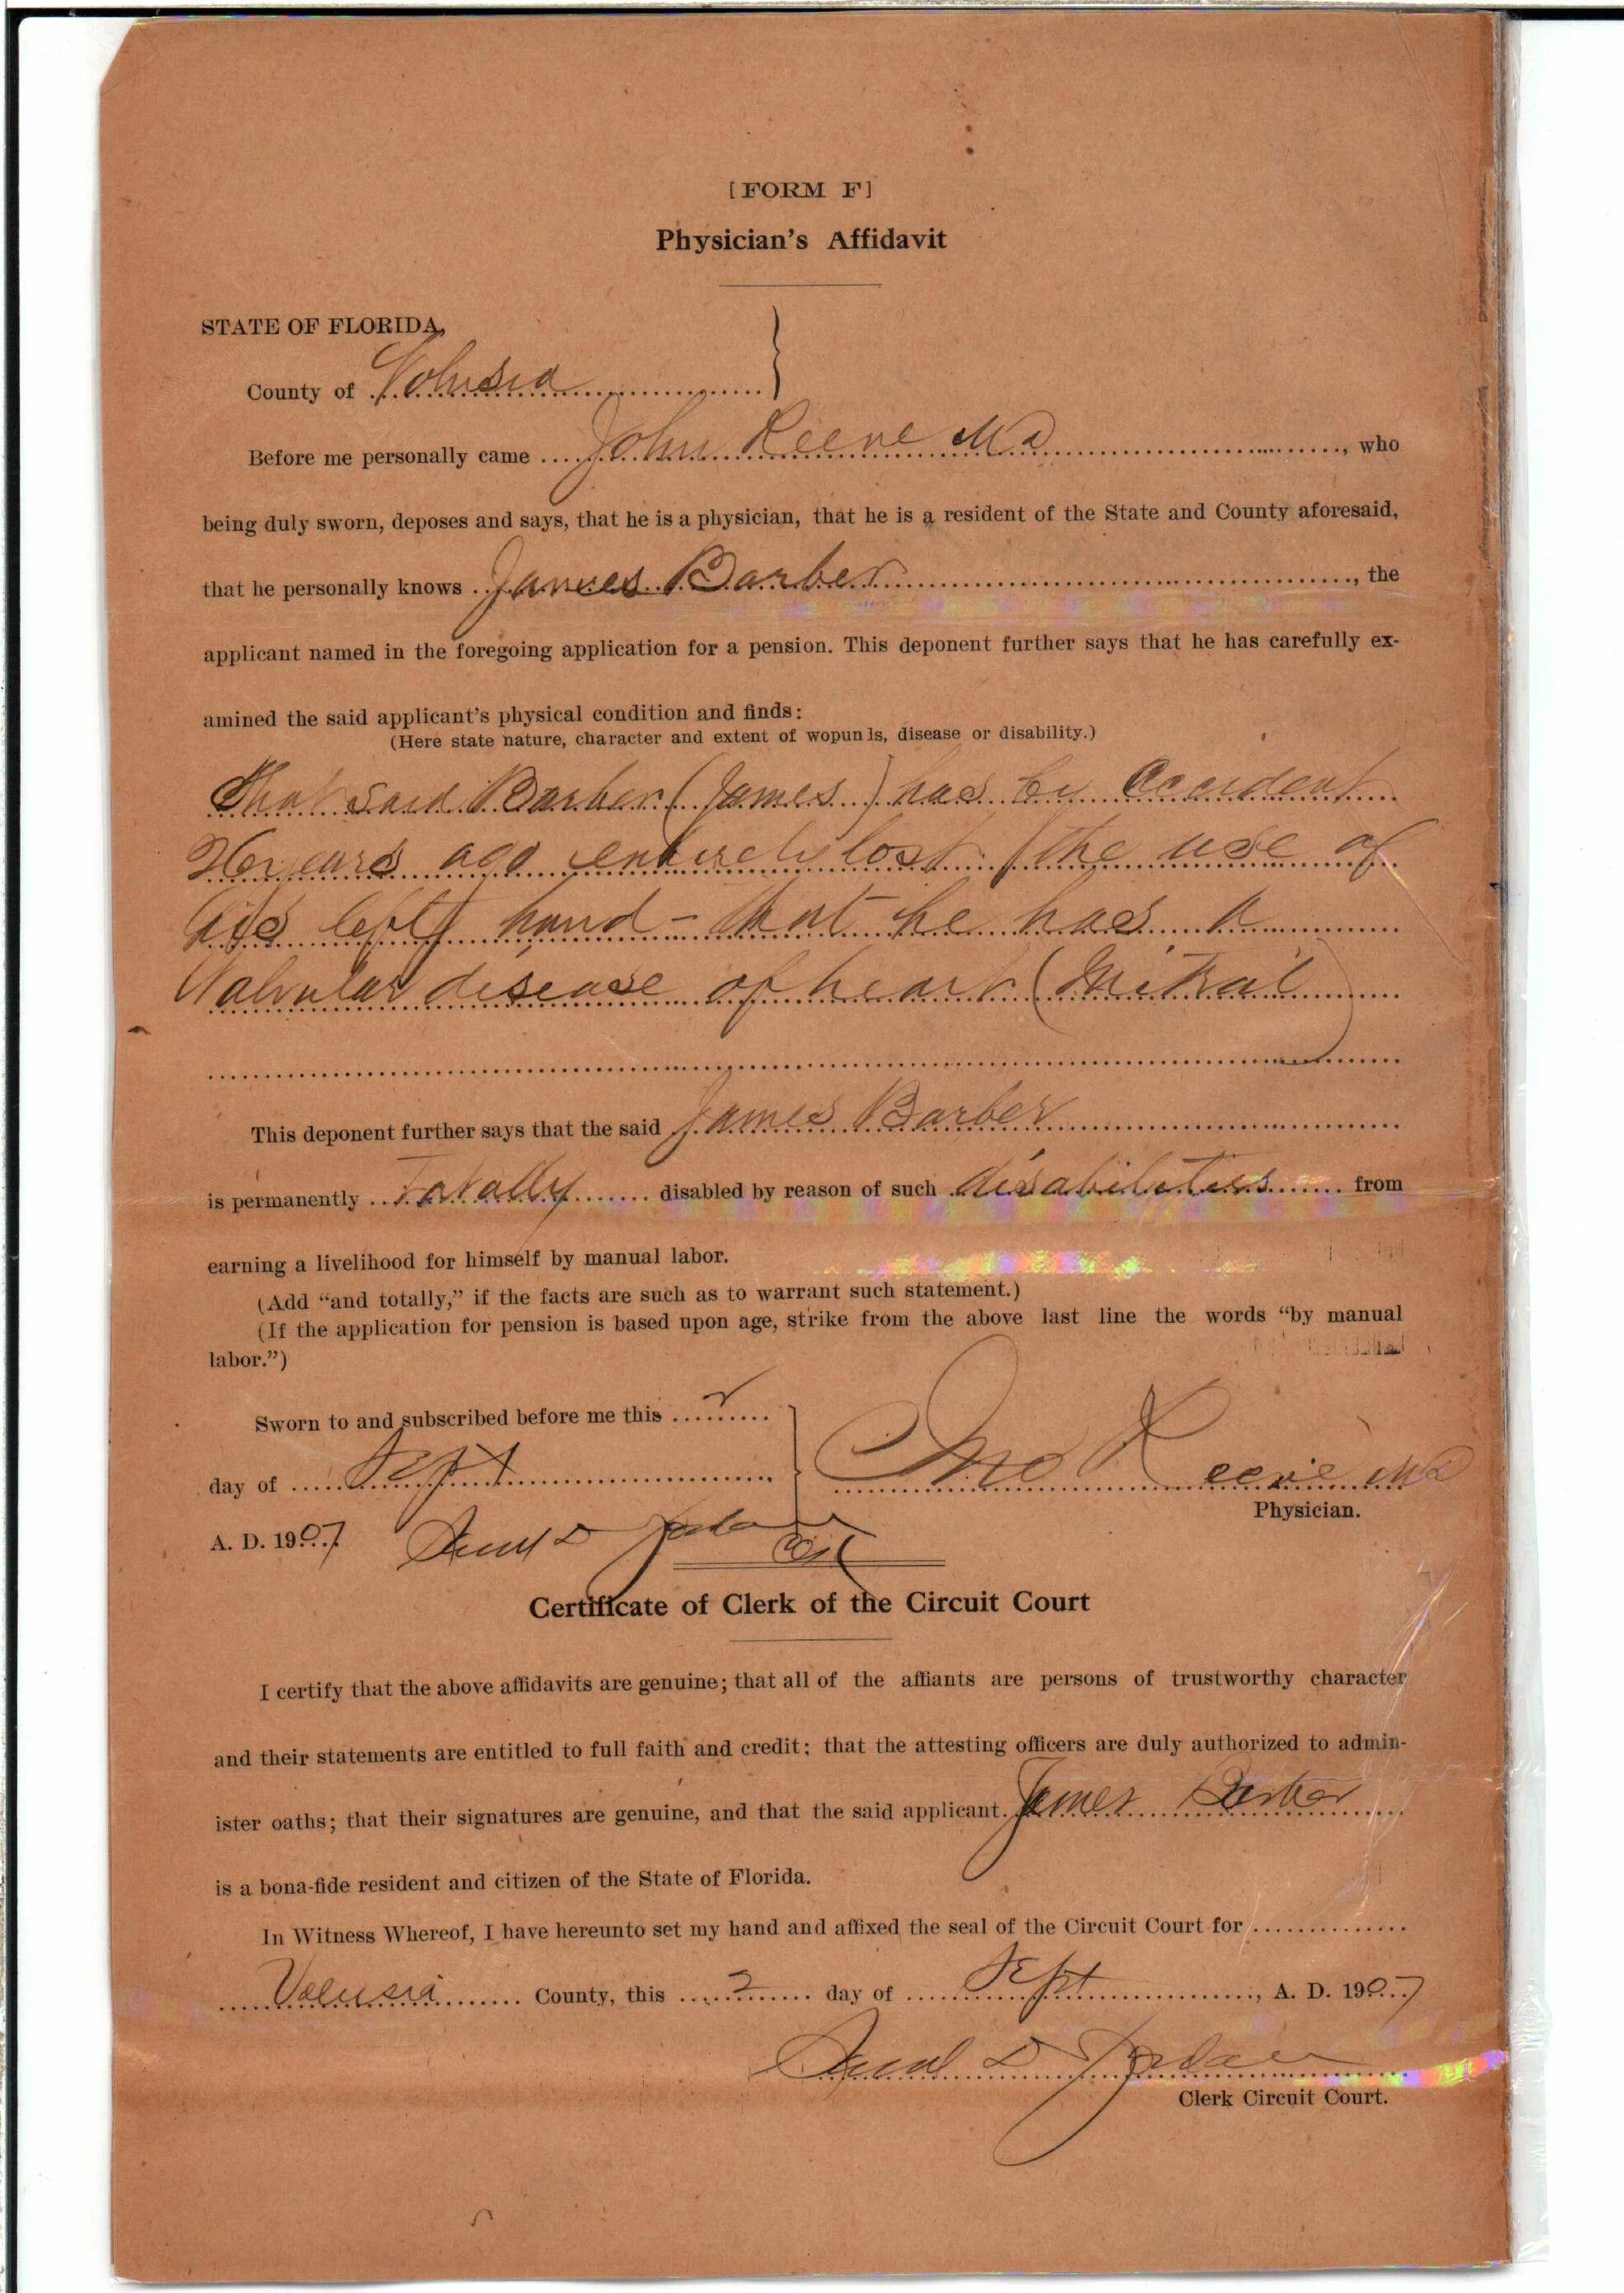 [FORM F]
Physician's Affidavit
STATE OF FLORIDA,
County of Volusia
Before me personally came John Reeve Md, who
being duly sworn, deposes and says, that he is a physician, that he is a resident of the State and County aforesaid,
that he personally knows James Barber, the
applicant named in the foregoing application for a pension. This deponent further says that he has carefully ex-
amined the said applicant's physical condition and finds:
(Here state nature, character and extent of wopunls, disease or disability.)
That said Barber (James) has by accident
years ago entirely lost the use of
his left hand - that he has a
Valvular disease of heart (Mitral)
This deponent further says that the said James Barber
is permanently Totally disabled by reason of such disabilities from
earning a livelihood for himself by manual labor.
(Add "and totally," if the facts are such as to warrant such statement.)
(If the application for pension is based upon age, strike from the above last line the words "by manual
labor.")
Sworn to and subscribed before me this 2
day of Sept
Jno Reeve Md
Physician.
A. D. 1907 Saml D Jordan
Certificate of Clerk of the Circuit Court
I certify that the above affidavits are genuine; that all of the affiants are persons of trustworthy character
and their statements are entitled to full faith and credit; that the attesting officers are duly authorized to admin-
ister oaths; that their signatures are genuine, and that the said applicant James Barber
is a bona-fide resident and citizen of the State of Florida.
In Witness Whereof, I have hereunto set my hand and affixed the seal of the Circuit Court for
Volusia County, this 2 day of Sept, A. D. 1907
Saml D Jordan
Clerk Circuit Court.